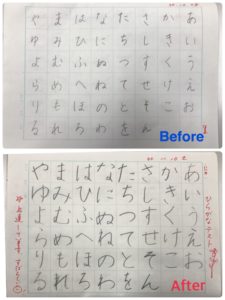 あいうえお
かきくけこ
さしすせそん
たちつてとを
なにぬねのわ
はひふへほろ
まみむめもれ
やゆよらりる
Before
ひらがなテスト
あいうえお
かきくけこ
さしすせそん
たちつてとを
なにぬねのわ
はひふへほろ
まみむめもれ
やゆよらりる
After